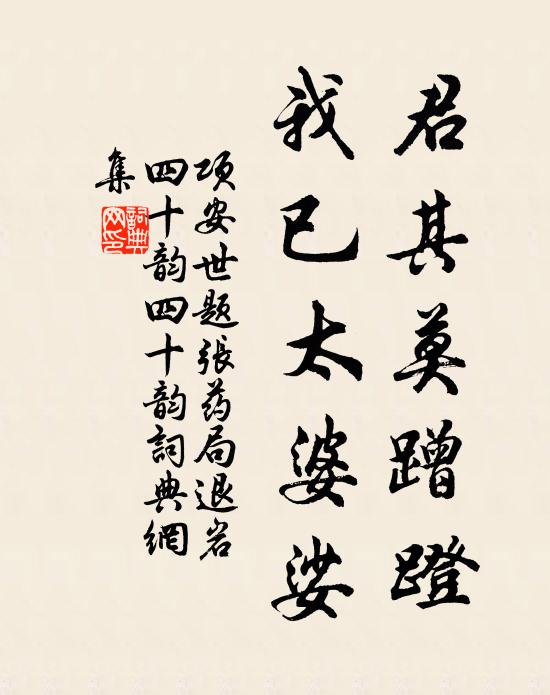 君其莫蹭蹬
我已太婆娑
项安世题张药局退岩
四十韵四十韵詞典網
集
詞典
网印